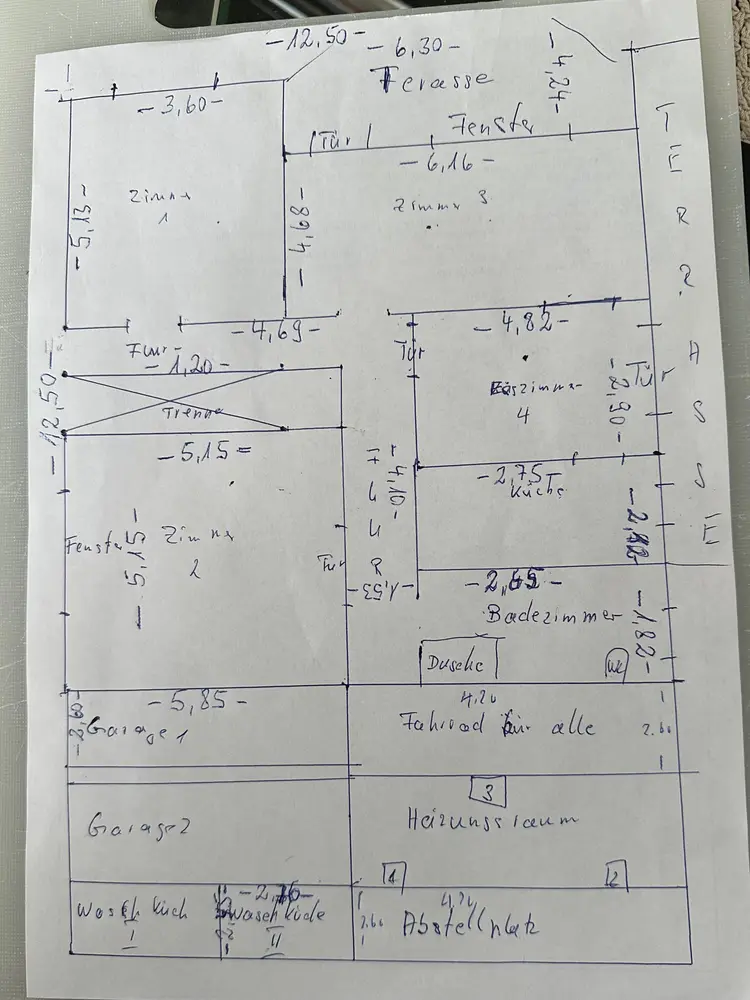 -12,50-
-6,30-
-4,24-
Terasse
-3,60-
(Tür)
Fenster
-6,16-
TERRASSE
Zimmer 1
-5,13-
-4,68-
Zimmer 3
-4,69-
-4,82-
Tür
-1,20-
Tür
Esszimmer
4
-2,90-
-12,50-
Trenne
-5,15=
-4,10-
-2,75-
Küche
Fenster
-5,15-
Zimmer
2
Tür
-1,53-
-1,82-
Badezimmer
Dusche
WC
-5,85-
-2,60-
Garage 1
4,20
Fahrrad für alle
2.60
3
Garage 2
Heizungsraum
1
2
Wasch küch
I
Waschküche
II
4,20
2.60
Abstellplatz